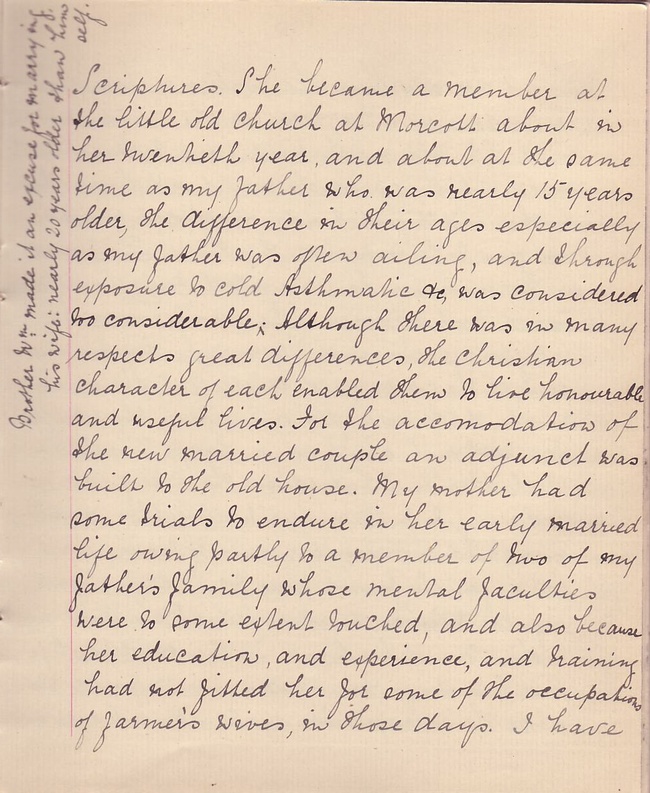 Scriptures. She became a member at
the little old church at Morcott about in
her twentieth year, and about at the same
time as my father who was nearly 15 years
older, the difference in their ages especially
as my father was often ailing, and through
exposure to cold Asthmatic &c, was considered
too considerable; Although there was in many
respects great differences, the Christian
character of each enabled them to live honourable
and useful lives. For the accomodation of
the new married couple an adjunct was
built to the old house. My mother had
some trials to endure in her early married
life owing partly to a member of two of my
father's family whose mental faculties
were to some extent touched, and also because
her education, and experience, and training
had not fitted her for some of the occupations
of farmer's wives, in those days. I have
Brother Wm made it an excuse for marrying
his wife: nearly 20 years older than him
self.